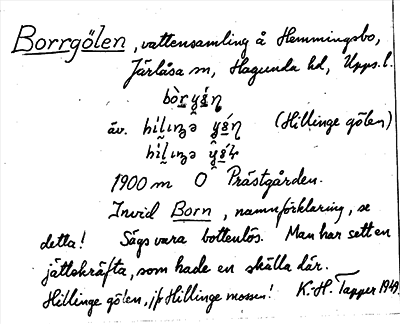 Borrgölen, vattensamling å Hemmingsbo,
Järlåsa sn, Hagunda hd, Upps. l.
äv. (Hillinge gölen)
1900 m O Prästgården.
Invid Born, namnförklaring, se
detta! Sägs vara bottenlös. Man har sett en
jättekräfta, som hade en skälla där.
Hillinge gölen, jfr Hillinge mossen! K.-H. Tapper 1949.